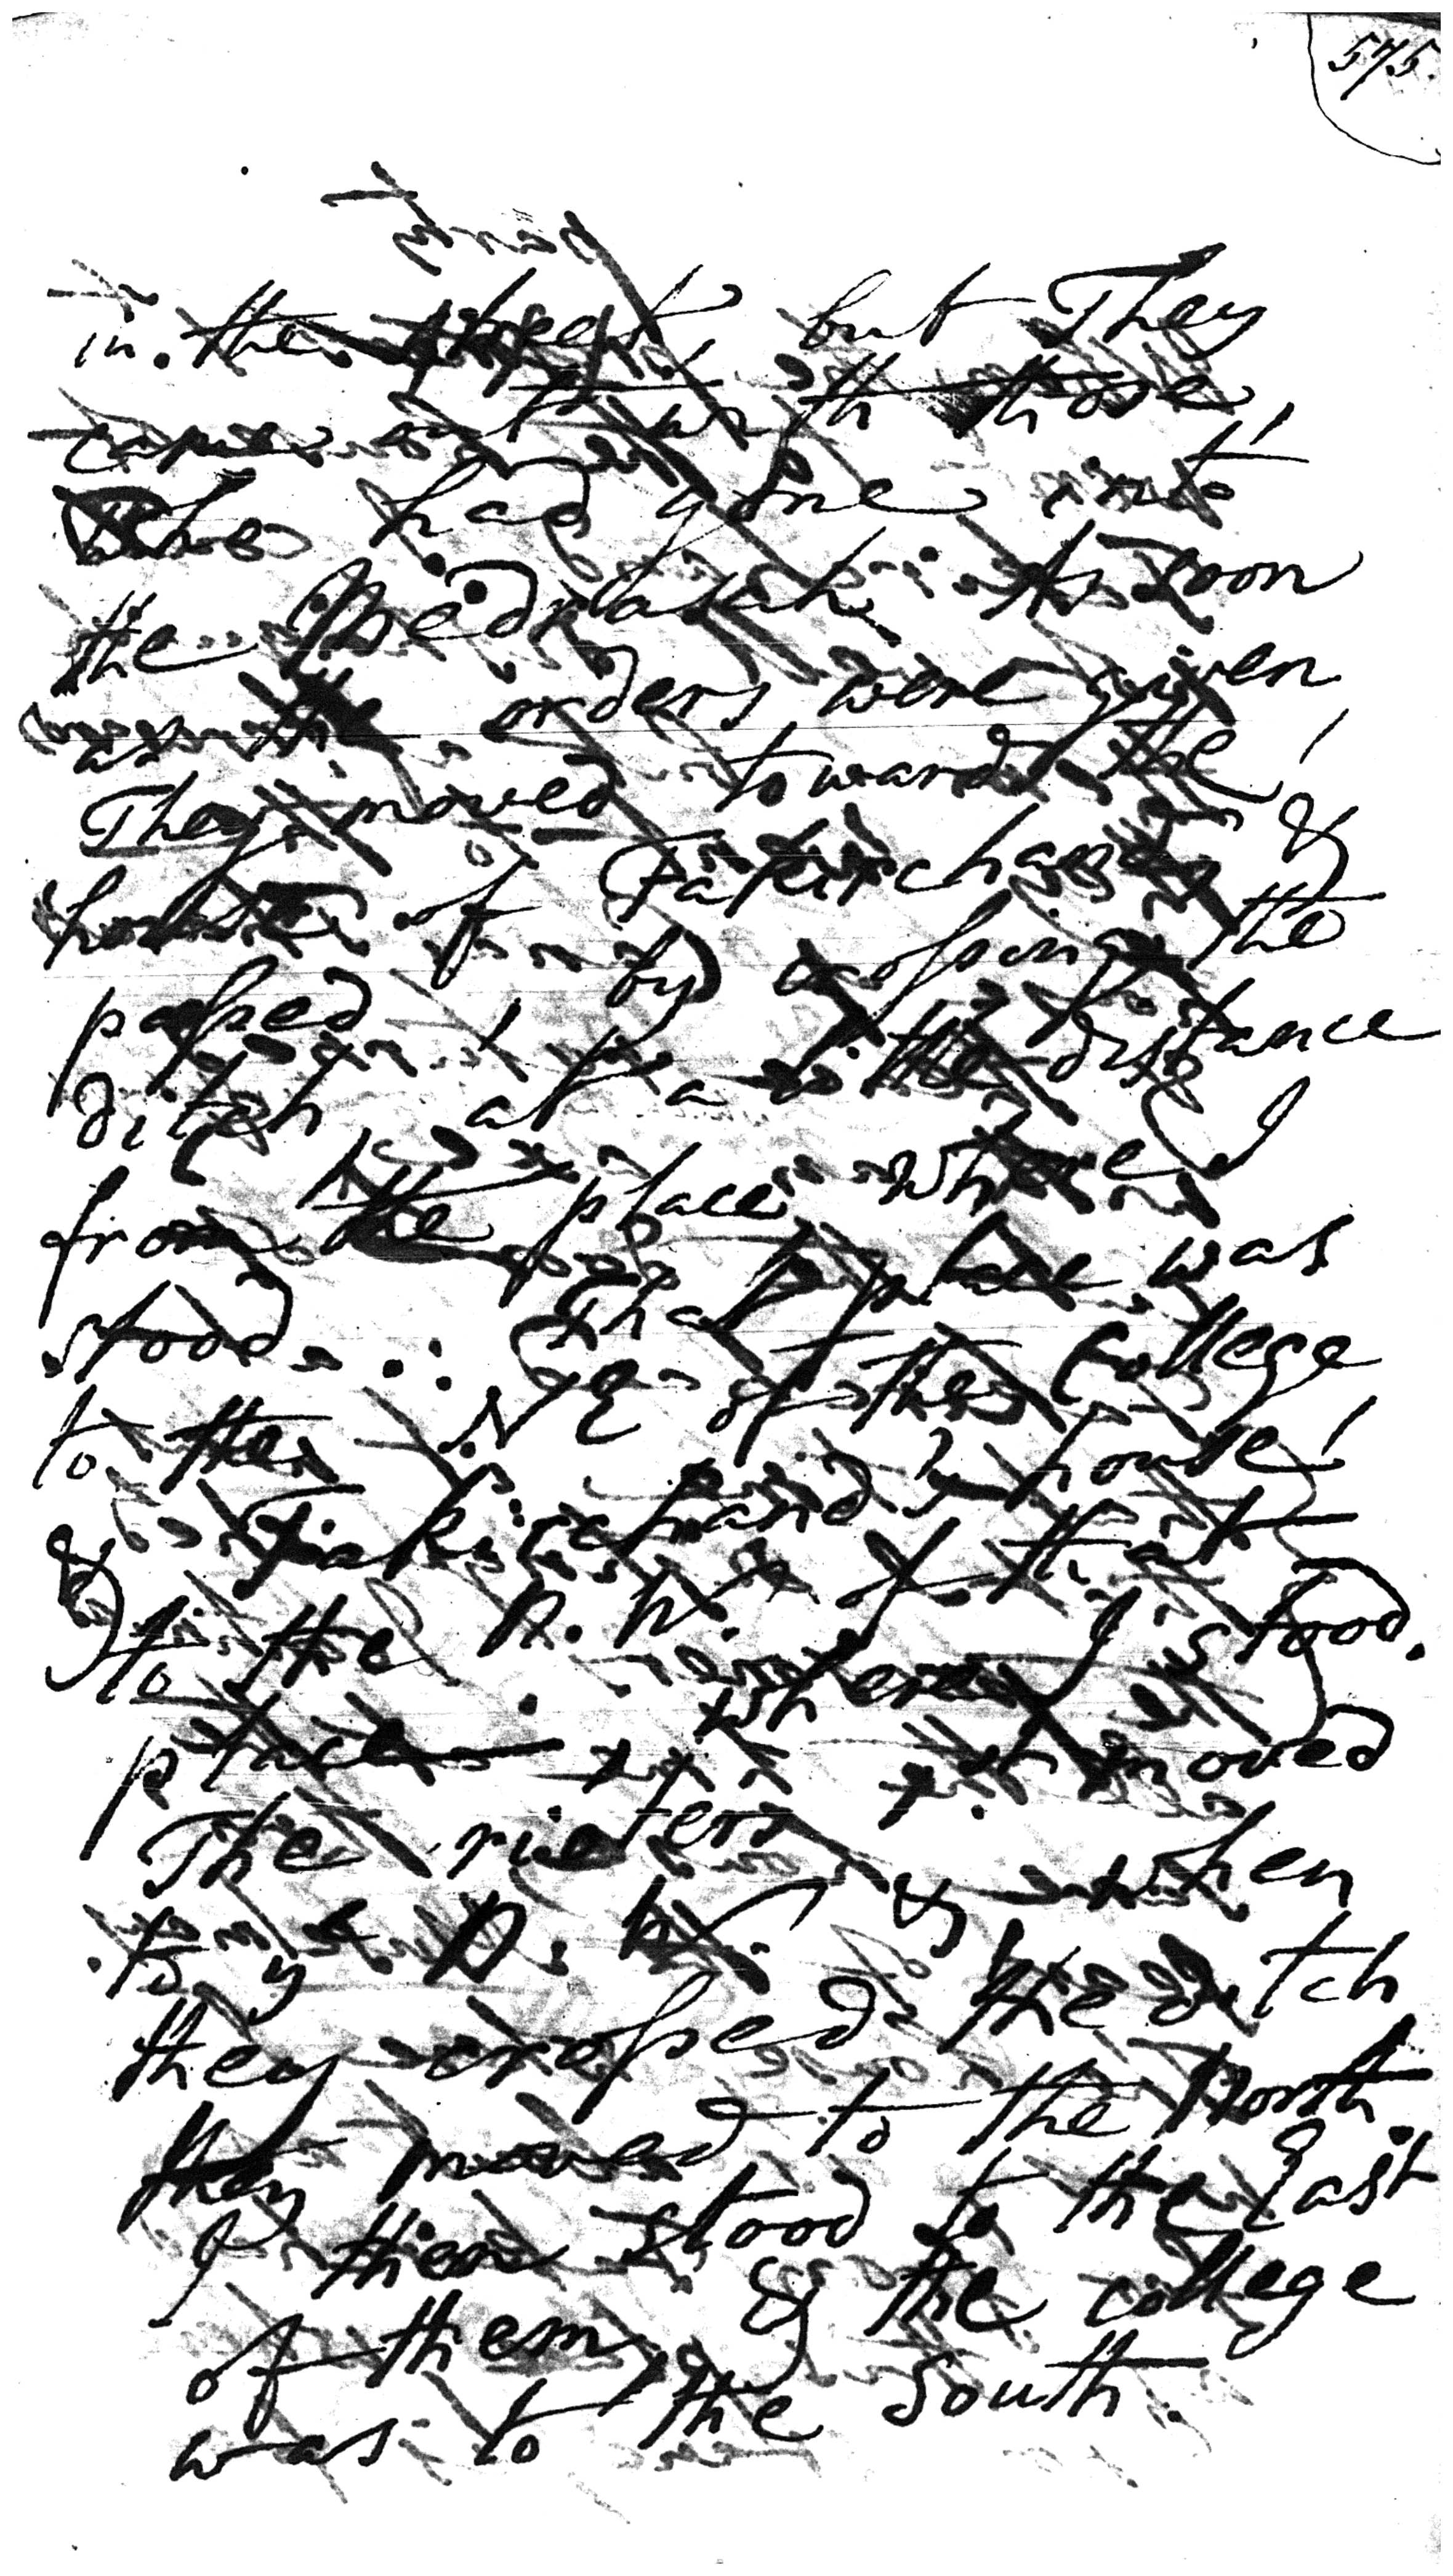 575.
in the street, but They
came out with those,
who had gone into
the Medrasah. As soon
as the orders were given
They moved towards the
house of Fakirchand, &
passed, by crossing the
ditch at a little distance
from the place where I
stood. That place was
to the N E of the College
& Fakirchand's house
to the N. W. of that
place where I stood.
The rioters moved
to ye N. W. & when
they crossed the ditch
they moved to the North.
I then stood to the East
of them, & the college
was to the South.